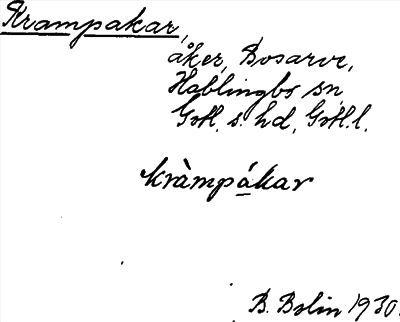 Krampakar,
åker, Bosarve,
Hablingbo sn,
Gotl. s. hd, Gotl. l.
kràmpákar
B. Bolin 1930.